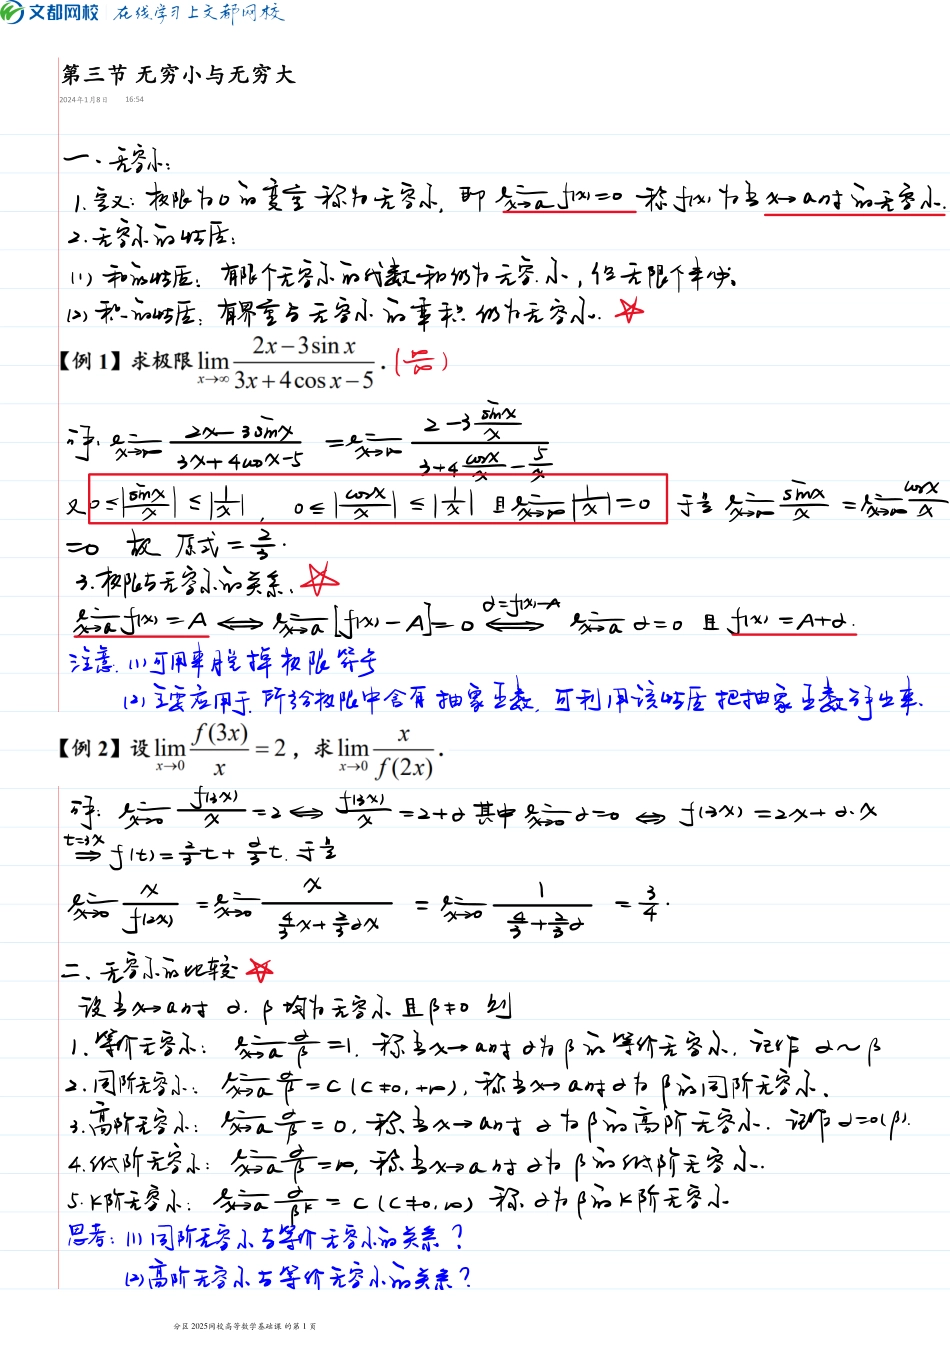 文都网校 在线学习上文都网校
第三节 无穷小与无穷大
2024年1月8日 16:54
一、无穷小:
1.定义: 极限为0的变量称为无穷小, 即 lim_{x→a} f(x)=0 称f(x)为当x→a时的无穷小.
2.无穷小的性质:
(1) 和的性质: 有限个无穷小的代数和仍为无穷小, 但无限个未必.
(2) 积的性质: 有界量与无穷小的乘积仍为无穷小. ☆
【例 1】求极限 lim_{x→∞} (2x−3sin x)/(3x+4cos x−5) . (∞/∞)
解: lim_{x→∞} (2x−3sinx)/(3x+4cosx−5) = lim_{x→∞} (2−3 sinx/x)/(3+4 cosx/x − 5/x)
又 0≤|sinx/x|≤|1/x|, 0≤|cosx/x|≤|1/x| 且 lim_{x→∞}|1/x|=0 于是 lim_{x→∞} sinx/x = lim_{x→∞} cosx/x
=0 故 原式=2/3.
3.极限与无穷小的关系. ☆
lim_{x→a} f(x)=A ⟺ lim_{x→a}[f(x)−A]=0 ⟺^{α=f(x)−A} lim_{x→a} α=0 且 f(x)=A+α.
注意. (1) 可用来脱掉极限符号
(2) 主要应用于所给极限中含有抽象函数, 可利用该性质把抽象函数解出来.
【例 2】设 lim_{x→0} f(3x)/x = 2, 求 lim_{x→0} x/f(2x) .
解: lim_{x→0} f(3x)/x =2 ⟺ f(3x)/x =2+α 其中 lim_{x→0} α=0 ⟺ f(3x)=2x+α·x
⟹^{t=3x} f(t)=2/3 t + α/3 t. 于是
lim_{x→0} x/f(2x) = lim_{x→0} x/(4/3 x + 2/3 αx) = lim_{x→0} 1/(4/3 + 2/3 α) = 3/4.
二、无穷小的比较 ☆
设当x→a时 α. β 均为无穷小且β≠0 则
1、等价无穷小: lim_{x→a} α/β =1. 称当x→a时α为β的等价无穷小, 记作 α~β
2.同阶无穷小: lim_{x→a} α/β = C (C≠0, +∞), 称当x→a时α为β的同阶无穷小.
3.高阶无穷小: lim_{x→a} α/β = 0, 称当x→a时α为β的高阶无穷小. 记作α=o(β).
4.低阶无穷小: lim_{x→a} α/β =∞, 称当x→a时α为β的低阶无穷小.
5.K阶无穷小: lim_{x→a} α/β^k = C (C≠0,∞) 称α为β的K阶无穷小
思考: (1) 同阶无穷小与等价无穷小的关系?
(2) 高阶无穷小与等价无穷小的关系?
分区 2025网校高等数学基础课 的第 1 页